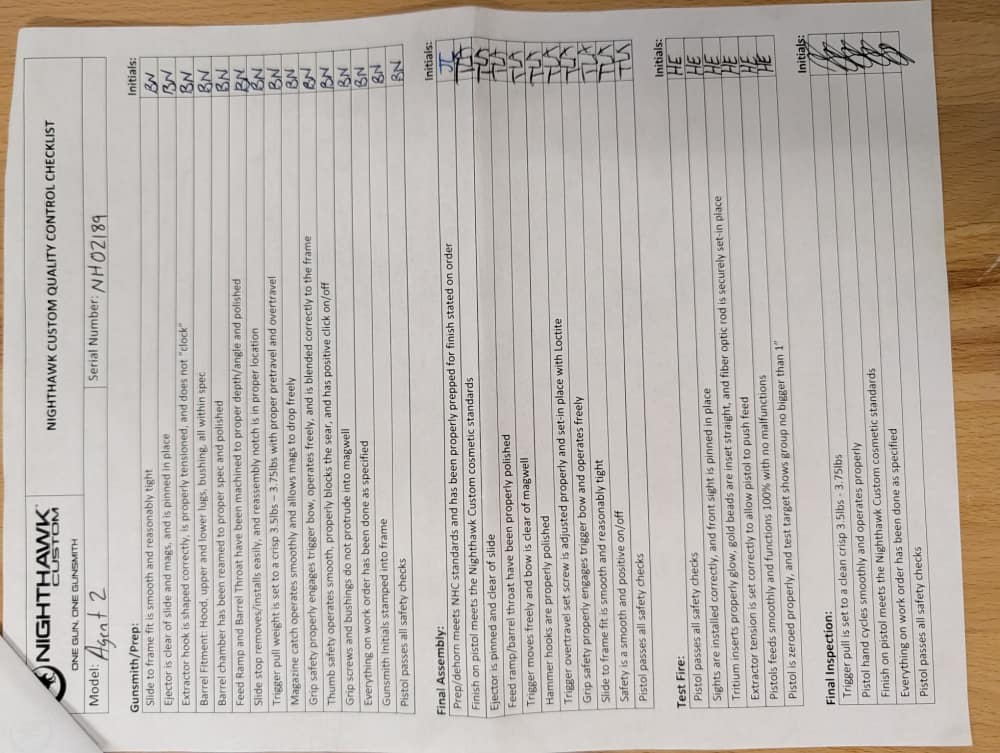 NIGHTHAWK
CUSTOM
ONE GUN, ONE GUNSMITH
NIGHTHAWK CUSTOM QUALITY CONTROL CHECKLIST
Model: Agent 2 Serial Number: NH02189
Gunsmith/Prep: Initials:
Slide to frame fit is smooth and reasonably tight BN
Ejector is clear of slide and mags, and is pinned in place BN
Extractor hook is shaped correctly, is properly tensioned, and does not "clock" BN
Barrel Fitment: Hood, upper and lower lugs, bushing, all within spec BN
Barrel chamber has been reamed to proper spec and polished BN
Feed Ramp and Barrel Throat have been machined to proper depth/angle and polished BN
Slide stop removes/installs easily, and reassembly notch is in proper location BN
Trigger pull weight is set to a crisp 3.5lbs – 3.75lbs with proper pretravel and overtravel BN
Magazine catch operates smoothly and allows mags to drop freely BN
Grip safety properly engages trigger bow, operates freely, and is blended correctly to the frame BN
Thumb safety operates smooth, properly blocks the sear, and has positive click on/off BN
Grip screws and bushings do not protrude into magwell BN
Everything on work order has been done as specified BN
Gunsmith Initials stamped into frame BN
Pistol passes all safety checks BN
Final Assembly: Initials:
Prep/dehorn meets NHC standards and has been properly prepped for finish stated on order
Finish on pistol meets the Nighthawk Custom cosmetic standards
Ejector is pinned and clear of slide
Feed ramp/barrel throat have been properly polished
Trigger moves freely and bow is clear of magwell
Hammer hooks are properly polished
Trigger overtravel set screw is adjusted properly and set-in place with Loctite
Grip safety properly engages trigger bow and operates freely
Slide to frame fit is smooth and reasonably tight
Safety is a smooth and positive on/off
Pistol passes all safety checks
Test Fire: Initials:
Pistol passes all safety checks HE
Sights are installed correctly, and front sight is pinned in place HE
Tritium inserts properly glow, gold beads are inset straight, and fiber optic rod is securely set-in place HE
Extractor tension is set correctly to allow pistol to push feed HE
Pistols feeds smoothly and functions 100% with no malfunctions HE
Pistol is zeroed properly, and test target shows group no bigger than 1" HE
Final Inspection: Initials:
Trigger pull is set to a clean crisp 3.5lbs - 3.75lbs
Pistol hand cycles smoothly and operates properly
Finish on pistol meets the Nighthawk Custom cosmetic standards
Everything on work order has been done as specified
Pistol passes all safety checks